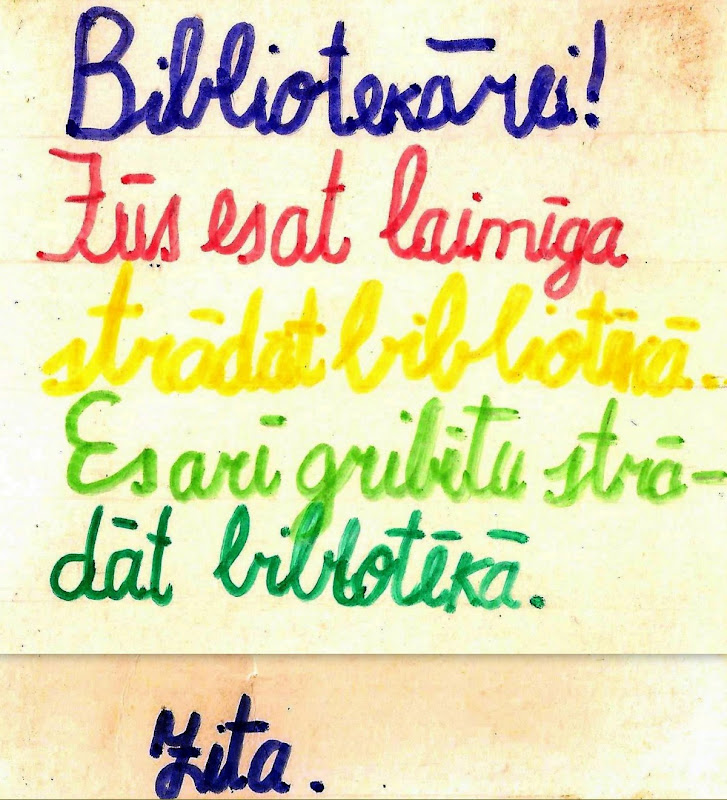 Bibliotekārei!
Jūs esat laimīga
strādāt bibliotēkā.
Es arī gribētu strā-
dāt biblotēkā.
Zita.